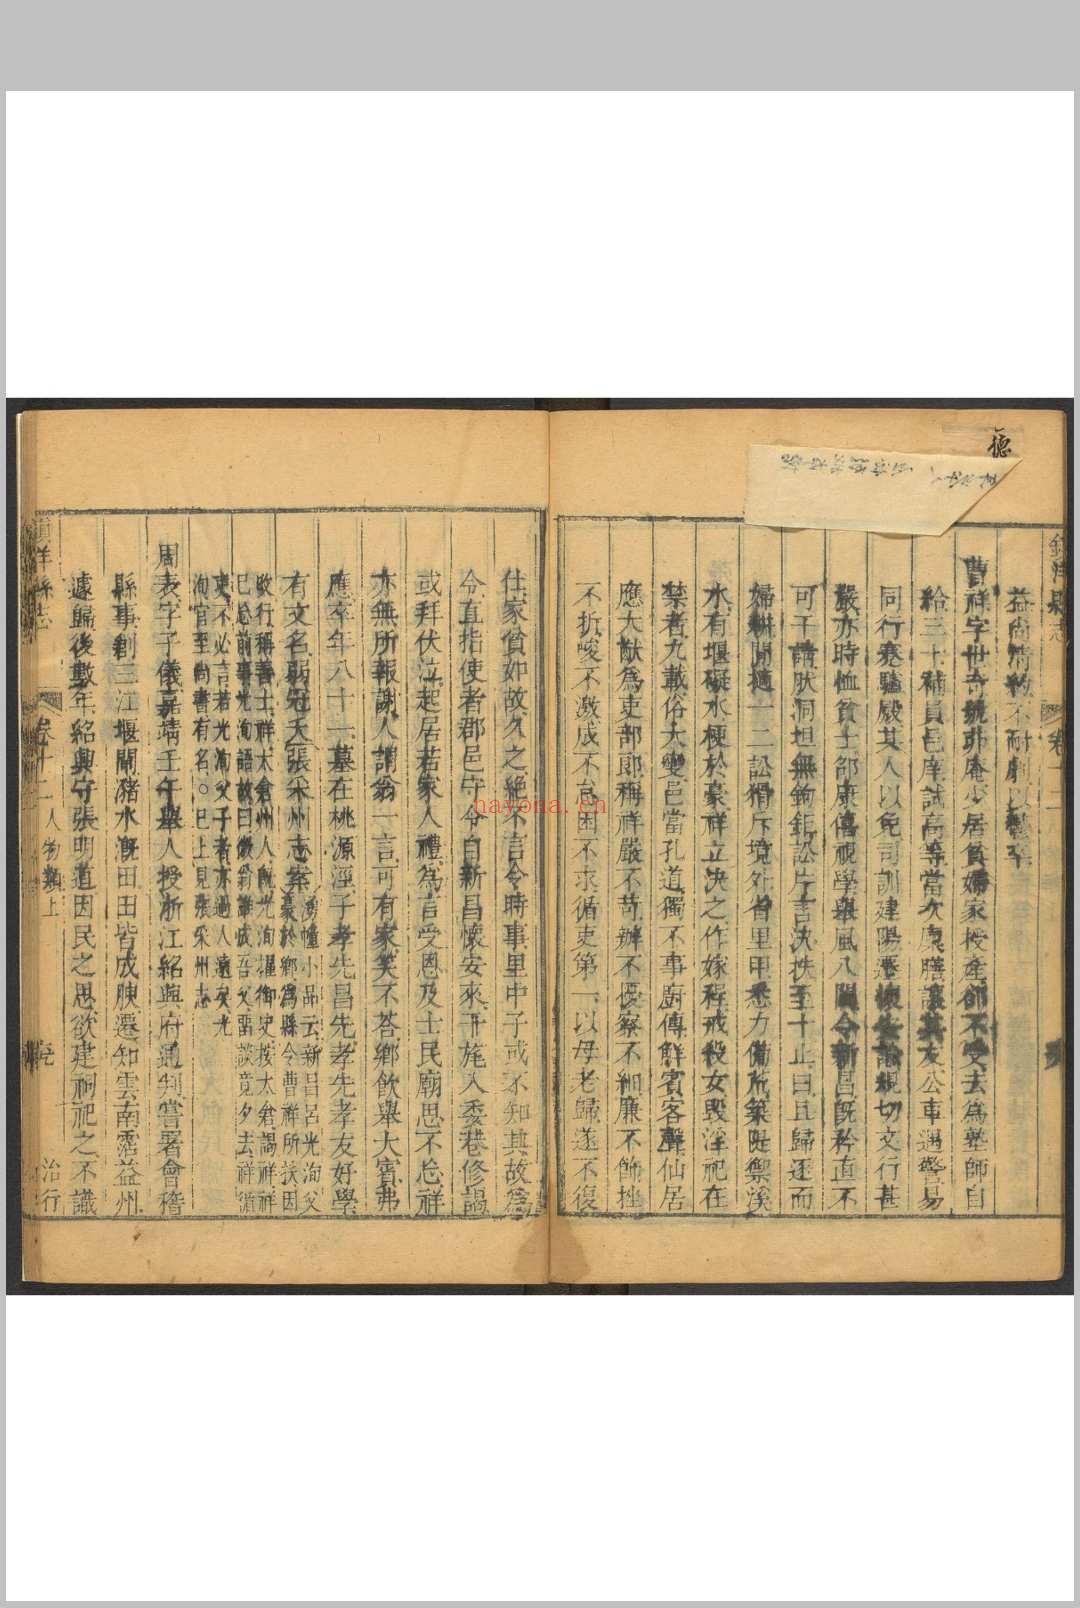 德
縣志
卷十二
益尚清約不耐劇以
曹祥字世奇號 菴少居貧婦家授產卻不受去爲塾師自
給三十補員邑庠試高等當次廩膳讓其友公車遇警易
同行蹇驢殿其人以免司訓建陽遷 安 規切文行甚
嚴亦時恤貧士部 視學舉風八閩令新昌旣矜直不
可干請肰洞坦無鉤鉅訟片言決抶至十止曰且歸逐而
婦耕閒 一二訟猾斥境外省里甲悉力備 築 禦溪
水有堰礙水梗於豪祥立決之作嫁程戒殺女毀淫祀在
禁者九載俗大變邑當孔道獨不事廚傳鮮賓客聲仙居
應大猷爲吏部郎稱祥嚴不苛辦不擾察不細廉不飾挫
不折峻不激成不怠困不求循吏第一以母老歸遂不復
仕家貧如故久之絕不言令時事里中子或不知其故爲
令直指使者郡邑守令自新昌懷安來干旄入委巷修謁
或拜伏泣起居若家人禮爲言受恩及士民廟思不忘祥
亦無所報謝人謂翁一言可有家笑不荅鄉飲舉大賓弗
應卒年八十一墓在桃源涇子孝先昌先孝先孝友好學
有文名弱冠夭張采州志案湧幢小品云新昌呂光洵父
豪於鄉爲縣令曹祥所抶因
改行稱善士祥太倉州人旣光洵擢御史按太倉謁祥祥
已忘前事光洵語故曰微翁誰成吾父留談竟夕去祥循
吏不必言若光洵父子者亦過人遠矣光
洵官至尚書有名○已上見張采州志
周表字子儀嘉靖壬午舉人授浙江紹興府通判嘗署會稽
縣事創三江堰閘豬水漑田田皆成腴遷知雲南霑益州
遽歸後數年紹興守張明道因民之思欲建祠祀之不識
鎮洋縣志
卷十二
人物類上
治行
nayona.cn